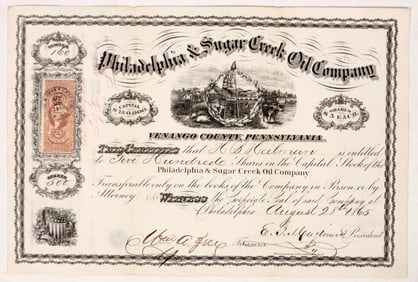 NUMBER
160
Philadelphia & Sugar Creek Oil Company
CAPITAL
SHARES
$5 EACH.
VENANGO COUNTY, PENNSYLVANIA.
This Certifies that is entitled
to Five Hundred Shares in the Capital Stock of the
Philadelphia & Sugar Creek Oil Company
Transferable only on the books of the Company in Person or by
Attorney. Witness the Corporate Seal of said Company at
Philadelphia August 28th 1865
SHARES
500
Treasurer
President